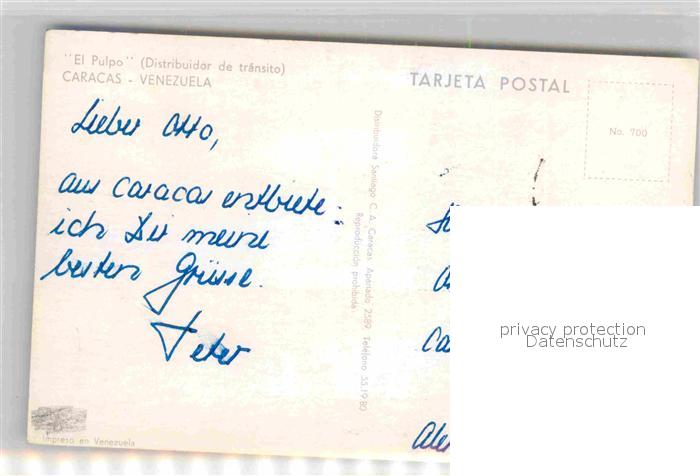 "El Pulpo" (Distribuidor de tránsito)
CARACAS - VENEZUELA
TARJETA POSTAL
No. 700
Lieber Otto,
aus Caracas entbiete
ich Dir meine
besten Grüsse.
Peter
Distribuidora Santiago C. A. Caracas Apartado 2589 Teléfono 55.19.80
Reproducción prohibida
Ca
privacy protection
Datenschutz
Impreso en Venezuela